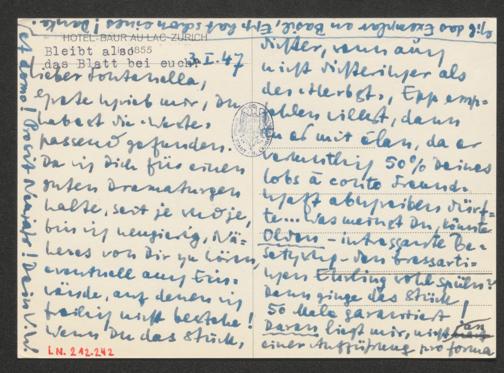 HOTEL-BAUR AU LAC-ZÜRICH
Bleibt also
855
das Blatt bei euch!
3.I.47
Lieber Fontanella,
schrieb mir, Du
habest die
passend gefunden.
Da ich Dich für einen
guten Dramaturgen
halte, seit je und je,
bin ich neugierig, Nä-
heres von Dir zu hören,
eventuell auch Ein-
wände, auf denen ich
freilich nicht bestehe!
Wenn Du das Stück,
düster, wenn auch
nicht düsterer als
der Herbst, Epp emp-
fehlen willst, dann
tu es mit élan, da er
vermutlich 50% Deines
Lobs à conto Freund-
schaft abschreiben dürf-
te... Was meinst Du, könnte
Olden - interessante Be-
setzung - den bressarti-
schen Ehrling wohl spielen?
Dann ginge das Stück!
50 Male garantiert!
Daran liegt mir, nicht an
einer Aufführung pro forma
et domo! Prosit Neujahr! Dein V.W.
gib das Exemplar an Basil, Epp hat schon eines! Danke!
I.N. 212.242